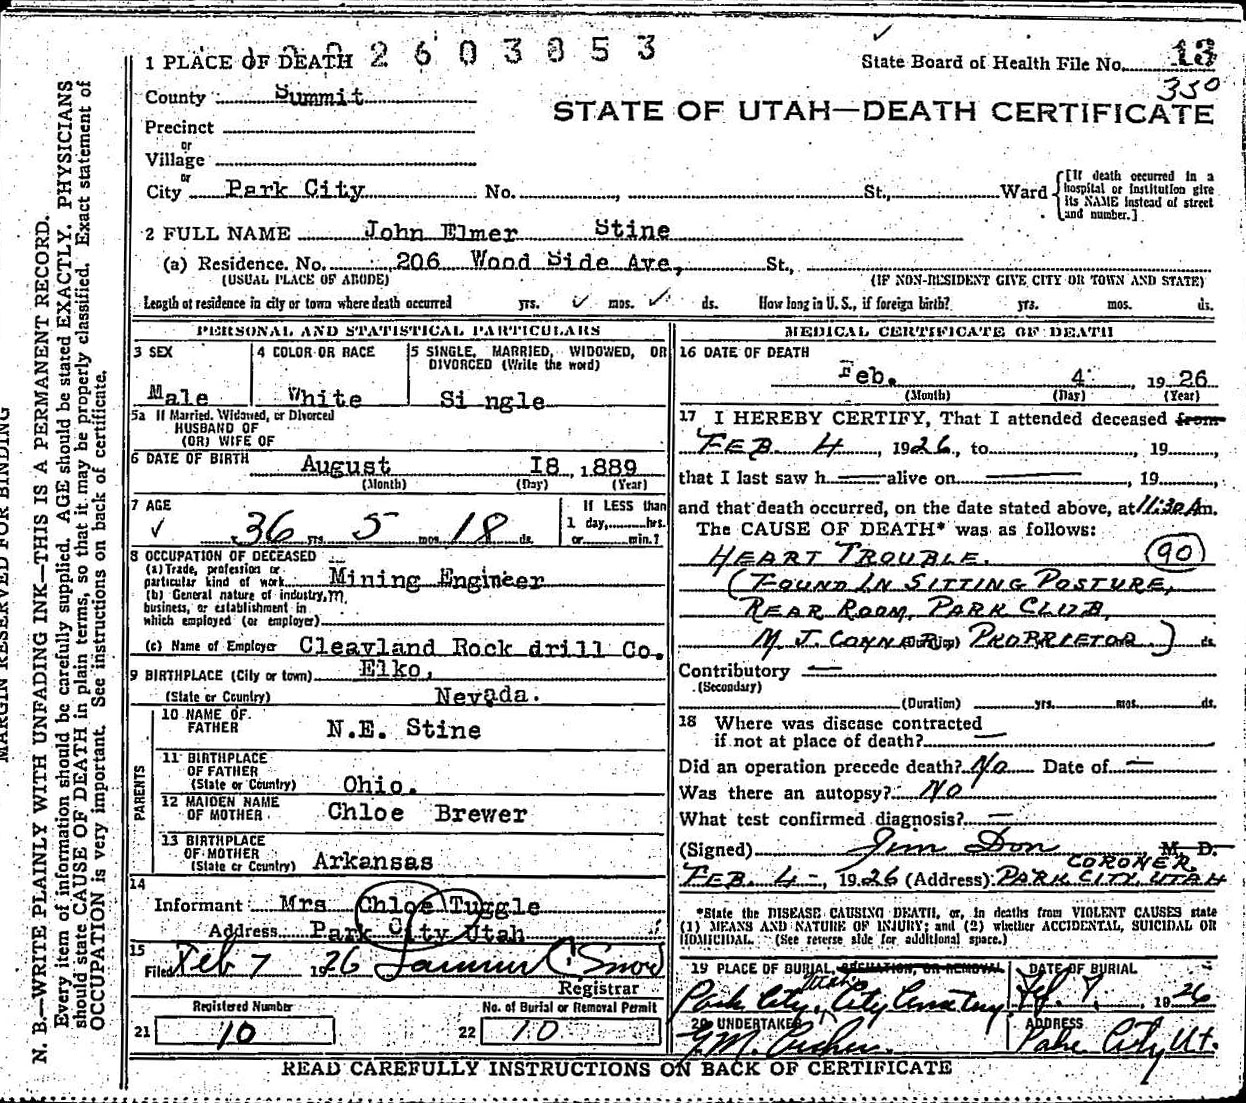 2603853
State Board of Health File No. 13
350
1 PLACE OF DEATH
County Summit
STATE OF UTAH—DEATH CERTIFICATE
Precinct
or
Village
or
City Park City No. , St., Ward
[If death occurred in a hospital or institution give its NAME instead of street and number.]
2 FULL NAME John Elmer Stine
(a) Residence. No. 206 Wood Side Ave, St.,
(USUAL PLACE OF ABODE) (IF NON-RESIDENT GIVE CITY OR TOWN AND STATE)
Length of residence in city or town where death occurred yrs. ✓ mos. ✓ ds. How long in U. S., if foreign birth? yrs. mos. ds.
PERSONAL AND STATISTICAL PARTICULARS
3 SEX
Male
4 COLOR OR RACE
White
5 SINGLE, MARRIED, WIDOWED, OR DIVORCED (Write the word)
Si ngle
5a If Married, Widowed, or Divorced
HUSBAND OF
(OR) WIFE OF
6 DATE OF BIRTH August I8 , 1889
(Month) (Day) (Year)
7 AGE
✓ 36 yrs. 5 mos. 18 ds.
If LESS than
1 day, hrs.
or min.?
8 OCCUPATION OF DECEASED
(a) Trade, profession or
particular kind of work Mining Engineer
(b) General nature of industry,
business, or establishment in
which employed (or employer)
(c) Name of Employer Cleavland Rock drill Co.
9 BIRTHPLACE (City or town) Elko,
(State or Country) Nevada.
PARENTS
10 NAME OF
FATHER N.E. Stine
11 BIRTHPLACE
OF FATHER
(State or Country) Ohio.
12 MAIDEN NAME
OF MOTHER Chloe Brewer
13 BIRTHPLACE
OF MOTHER
(State or Country) Arkansas
14
Informant Mrs Chloe Tuggle
Address Park City Utah
15
Filed Feb 7 1926 Snow
Registrar
Registered Number
21 10
No. of Burial or Removal Permit
22 10
MEDICAL CERTIFICATE OF DEATH
16 DATE OF DEATH
Feb. 4 , 1926
(Month) (Day) (Year)
17 I HEREBY CERTIFY, That I attended deceased from
FEB. 4 , 1926, to , 19 ,
that I last saw h alive on , 19 ,
and that death occurred, on the date stated above, at 11:30 A m.
The CAUSE OF DEATH* was as follows:
HEART TROUBLE. (90)
(FOUND IN SITTING POSTURE,
REAR ROOM, PARK CLUB,
M. J. CONNOR (Duration) PROPRIETOR) ds.
Contributory —
(Secondary)
(Duration) yrs. mos. ds.
18 Where was disease contracted
if not at place of death? —
Did an operation precede death? No Date of —
Was there an autopsy? No
What test confirmed diagnosis? —
(Signed) Jim Don M. D.
CORONER
FEB. 4-, 1926 (Address) PARK CITY, UTAH
*State the DISEASE CAUSING DEATH, or, in deaths from VIOLENT CAUSES state
(1) MEANS AND NATURE OF INJURY; and (2) whether ACCIDENTAL, SUICIDAL OR
HOMICIDAL. (See reverse side for additional space.)
19 PLACE OF BURIAL, CREMATION, OR REMOVAL
Park City, Utah City Cemetery
DATE OF BURIAL
Feb. 7, 1926
20 UNDERTAKER
ADDRESS
Park City Ut.
READ CAREFULLY INSTRUCTIONS ON BACK OF CERTIFICATE
MARGIN RESERVED FOR BINDING
N. B.—WRITE PLAINLY WITH UNFADING INK—THIS IS A PERMANENT RECORD.
Every item of information should be carefully supplied. AGE should be stated EXACTLY. PHYSICIANS
should state CAUSE OF DEATH in plain terms, so that it may be properly classified. Exact statement of
OCCUPATION is very important. See instructions on back of certificate.